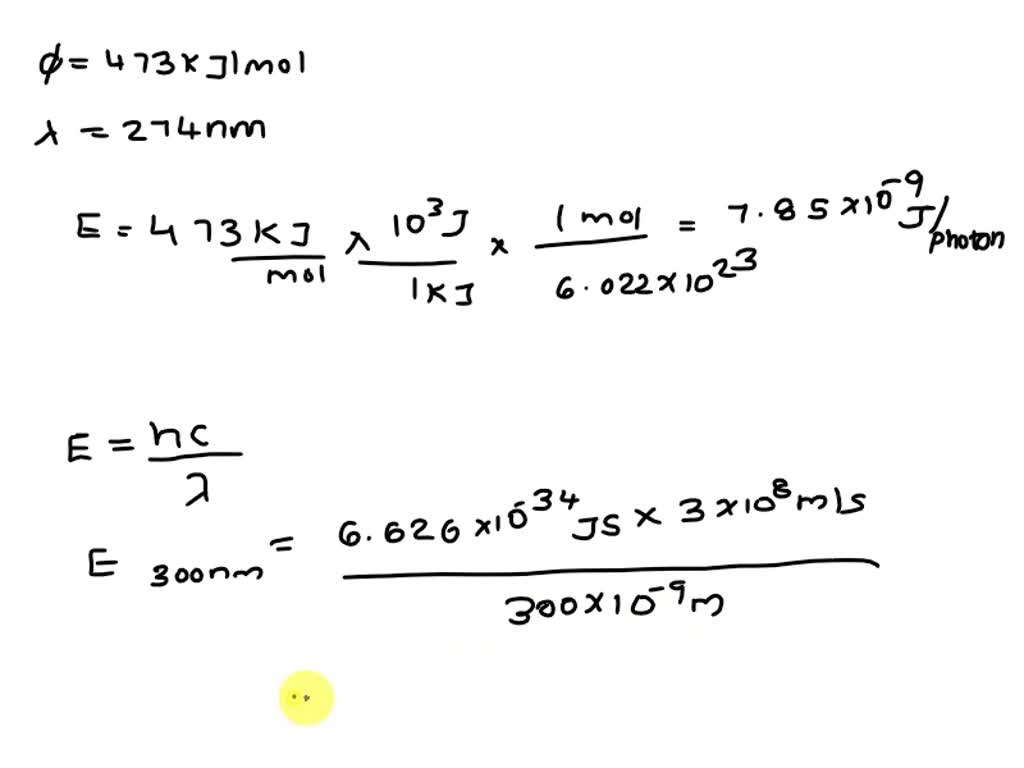 ϕ = 473 KJ/mol
λ = 274nm
E = 473KJ/mol × 10³J/1KJ × 1 mol/6.022×10²³ = 7.85×10⁻⁹ J/photon
E = hc/λ
E 300nm = 6.626×10⁻³⁴ JS × 3×10⁸m/s / 300×10⁻⁹m